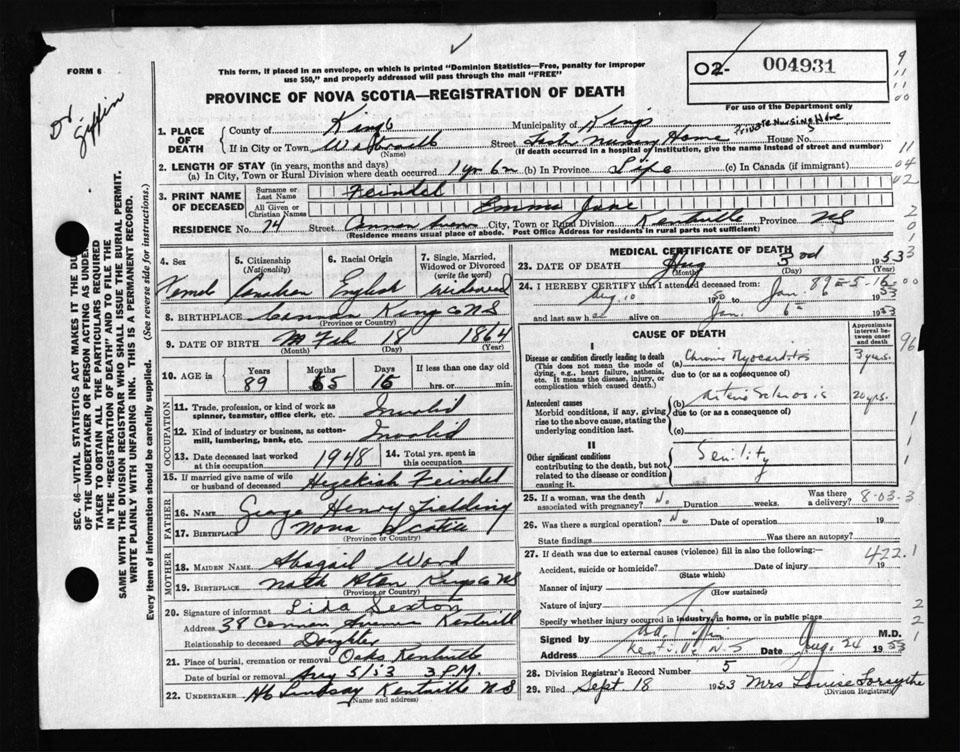 FORM 6
This form, if placed in an envelope, on which is printed "Dominion Statistics—Free, penalty for improper
use $50," and properly addressed will pass through the mail "FREE"
02- 004931
For use of the Department only
PROVINCE OF NOVA SCOTIA—REGISTRATION OF DEATH
Dr. Giffin
1. PLACE OF DEATH
County of Kings Municipality of Kings
If in City or Town (Name) Street Nursing Home Private Nursing Home House No.
(If death occurred in a hospital or institution, give the name instead of street and number)
2. LENGTH OF STAY (in years, months and days)
(a) In City, Town or Rural Division where death occurred 1 yr 6 m (b) In Province Life (c) In Canada (if immigrant)
3. PRINT NAME OF DECEASED
Surname or Last Name Feindel
All Given or Christian Names Emma Jane
RESIDENCE No. 74 Street City, Town or Rural Division Kentville Province NS
(Residence means usual place of abode. Post Office Address for residents in rural parts not sufficient)
4. Sex Female
5. Citizenship (Nationality) Canadian
6. Racial Origin English
7. Single, Married, Widowed or Divorced (write the word) Widowed
8. BIRTHPLACE Kings Co NS
(Province or Country)
9. DATE OF BIRTH Feb 18 1864
(Month) (Day) (Year)
10. AGE in Years 89 Months 5 Days 16 If less than one day
hrs. or min.
OCCUPATION
11. Trade, profession, or kind of work as spinner, teamster, office clerk, etc. Invalid
12. Kind of industry or business, as cotton-mill, lumbering, bank, etc. Invalid
13. Date deceased last worked at this occupation 1948 14. Total yrs. spent in this occupation
15. If married give name of wife or husband of deceased Hezekiah Feindel
FATHER
16. NAME George Henry Fielding
17. BIRTHPLACE Nova Scotia
(Province or Country)
MOTHER
18. MAIDEN NAME Abagail Word
19. BIRTHPLACE Kings Co NS
(Province or Country)
20. Signature of informant Lida Sexton
Address 38 Avenue Kentville
Relationship to deceased Daughter
21. Place of burial, cremation or removal Oaks Kentville
Date of burial or removal Aug 5/53 3 P.M.
22. UNDERTAKER Lindsay Kentville NS
(Name and address)
MEDICAL CERTIFICATE OF DEATH
23. DATE OF DEATH Aug 3rd 1953
(Month) (Day) (Year)
24. I HEREBY CERTIFY that I attended deceased from 89-5-16
Aug. 10 1950 to Jan. 1953
and last saw h alive on Jan. 6 1953
CAUSE OF DEATH
Approximate interval between onset and death
I
Disease or condition directly leading to death
(This does not mean the mode of dying, e.g., heart failure, asthenia, etc. It means the disease, injury, or complication which caused death.)
(a) Chronic Myocarditis 3 yrs.
due to (or as a consequence of)
Antecedent causes
Morbid conditions, if any, giving rise to the above cause, stating the underlying condition last.
(b) Arterio Sclerosis 20 yrs.
due to (or as a consequence of)
(c)
II
Other significant conditions contributing to the death, but not related to the disease or condition causing it.
Senility
25. If a woman, was the death associated with pregnancy? No Duration weeks. Was there a delivery? 8-03.3
26. Was there a surgical operation? No Date of operation 19
State findings Was there an autopsy?
27. If death was due to external causes (violence) fill in also the following:— 422.1
Accident, suicide or homicide? Date of injury 19
(State which)
Manner of injury
(How sustained)
Nature of injury
Specify whether injury occurred in industry, in home, or in public place
Signed by M.D.
Address Kentville N.S Date Aug. 24 1953
28. Division Registrar's Record Number 5
29. Filed Sept 18 1953 Mrs Louise Forsythe
(Division Registrar)
SEC. 46—VITAL STATISTICS ACT MAKES IT THE DUTY
OF THE UNDERTAKER OR PERSON ACTING AS UNDER-
TAKER TO OBTAIN ALL THE PARTICULARS REQUIRED
IN THE "REGISTRATION OF DEATH" AND TO FILE THE
SAME WITH THE DIVISION REGISTRAR WHO SHALL ISSUE THE BURIAL PERMIT.
WRITE PLAINLY WITH UNFADING INK. THIS IS A PERMANENT RECORD.
Every item of information should be carefully supplied. (See reverse side for instructions.)